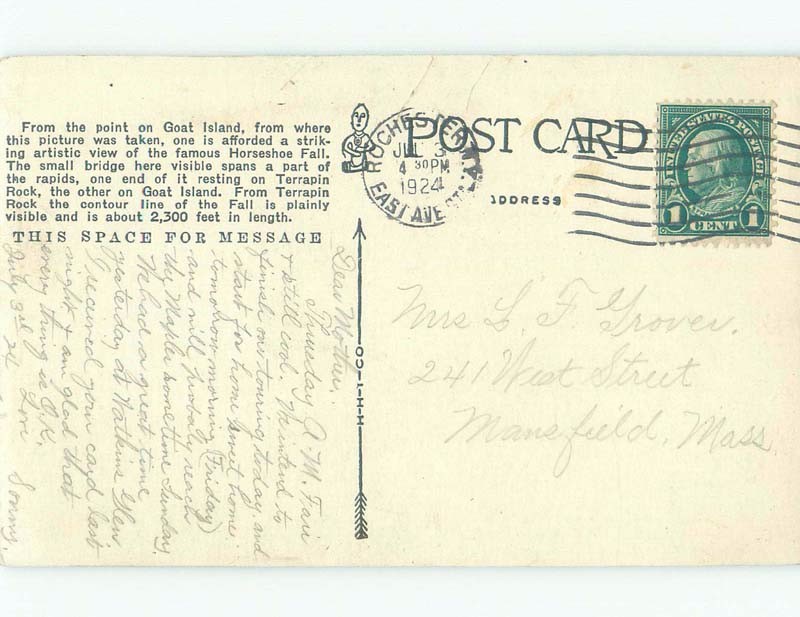 From the point on Goat Island, from where
this picture was taken, one is afforded a strik-
ing artistic view of the famous Horseshoe Fall.
The small bridge here visible spans a part of
the rapids, one end of it resting on Terrapin
Rock, the other on Goat Island. From Terrapin
Rock the contour line of the Fall is plainly
visible and is about 2,300 feet in length.
THIS SPACE FOR MESSAGE
Dear Mother,
Thursday A.M. Fair
& still cool. We intend to
finish our touring today and
start for home sweet home
tomorrow morning (Friday)
and will probaly reach
the Maples sometime Sunday.
We had a great time
yesterday at Watkins Glen
I received your card last
night & am glad that
every thing is O.K.
July 3rd 24 Sonny.
POST CARD
ADDRESS
ROCHESTER
JUL 3
4 30 PM
1924
EAST AVE STA.
UNITED STATES POSTAGE
1 CENT 1
C.T.H.H-CO
Mrs L. F. Grover.
241 West Street
Mansfield, Mass